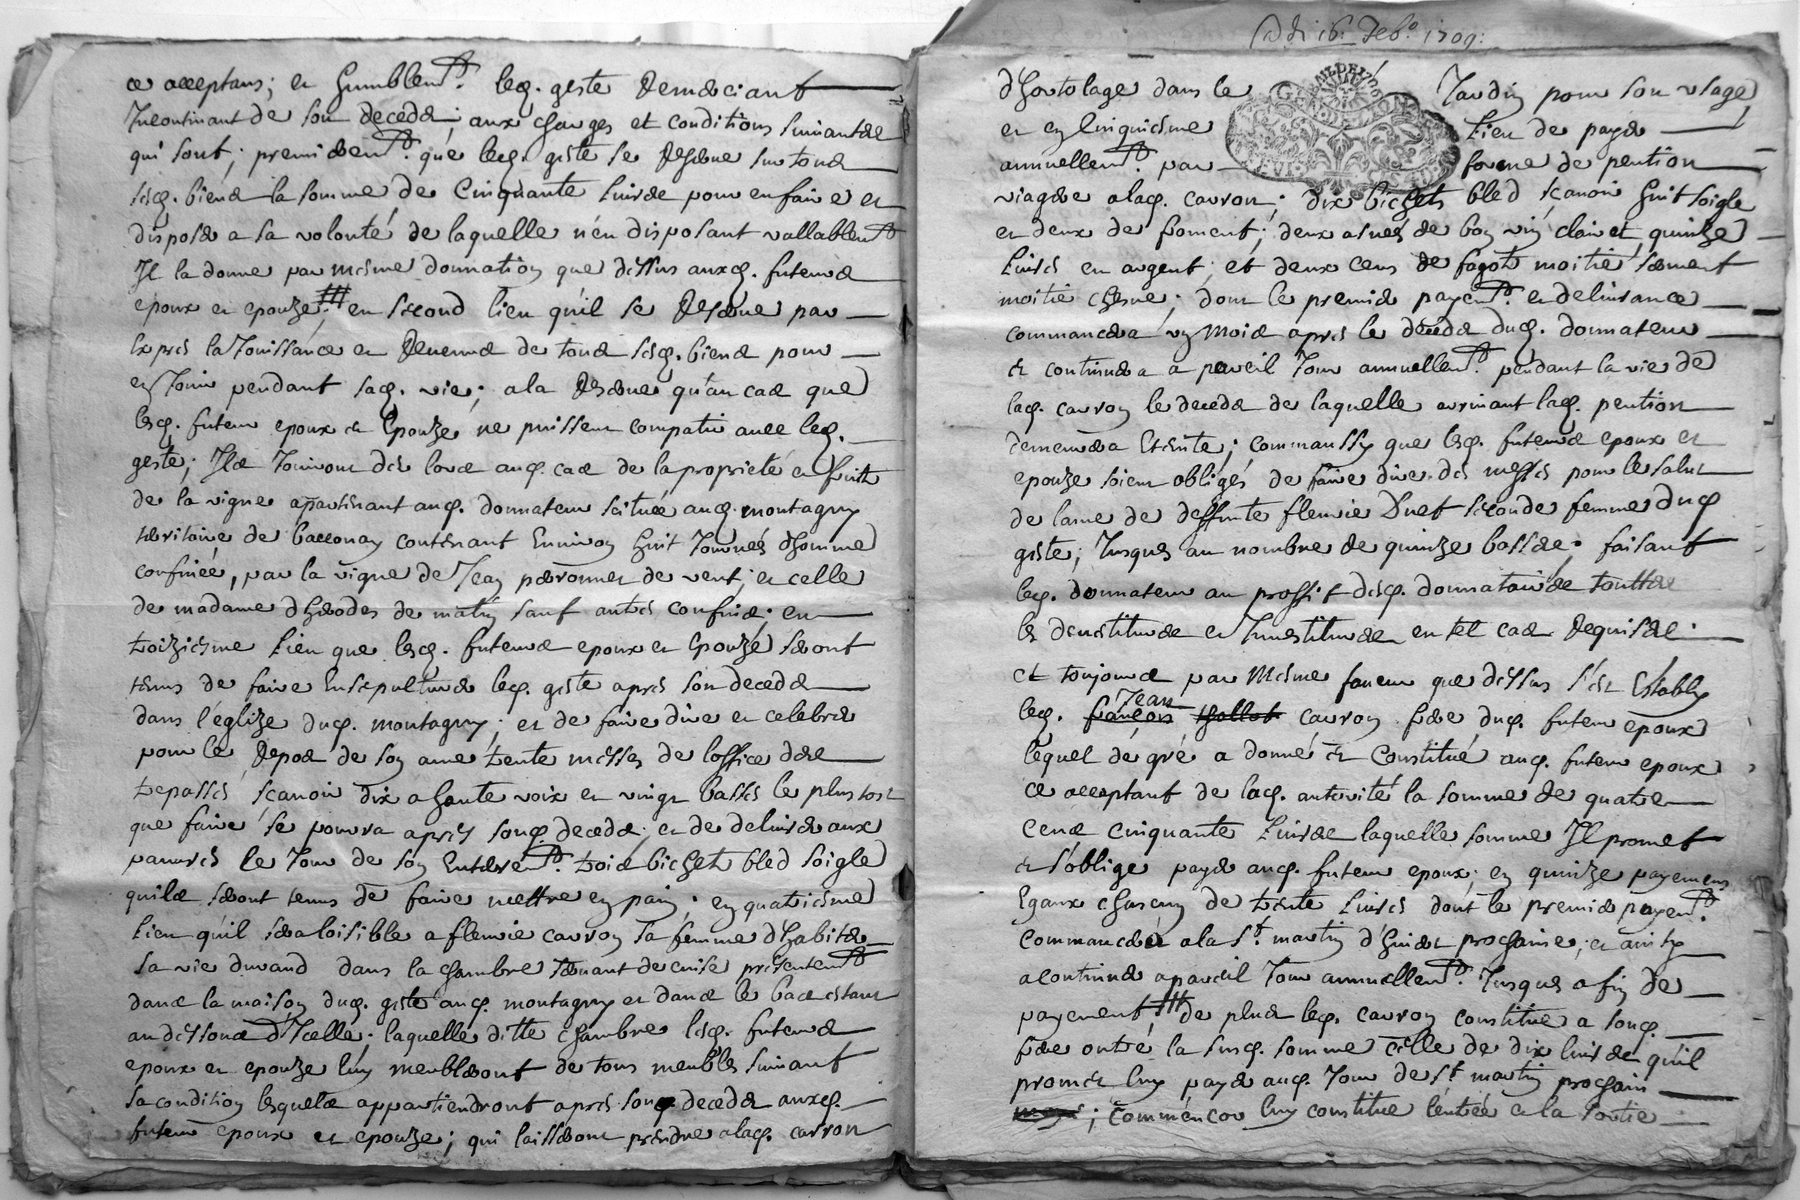 ce acceptans; et humblem.t led. giste remerciant
Incontinant de son decedz; aux charges et conditions suivantes
qui sont; premierem.t que led. giste se reserve sur tous
sesd. biens la somme de Cinquante livres pour en faire et
disposer a sa volonté de laquelle n'en disposant vallablem.t
Il la donne par mesme donnation que dessus auxd. futeurs
epoux et epouze; en second lieu qu'il se reserve par
exprés la Jouissance et revenus de tous sesd. biens pour
en Jouir pendant sad. vie; a la reserve qu'au cas que
lesd. futeur epoux et Epouze ne puissent compatir avec led.
giste; Ils Jouiront dés lors aud. cas de la proprieté et fruits
de la vigne apartenant aud. donnateur scituée aud. montagny
territoire de baconay contenant Environ huit Journés d'homme
confinéé, par la vigne de Jean perronnet de vent; et celle
de madame d'herodes de matin sauf autres confins; en
troizieme lieu que lesd. futeurs epoux et Epouze seront
tenus de faire Ensepulturer led. giste apres son decedz
dans l'églize dud. montagny; et de faire dire et celebrer
pour le repos de son ame trente messes de l'office des
trepassés sçavoir dix a haute voix et vingt basses le plus tost
que faire se pourra aprés sond. decedz; et de delivrer aux
pauvres le Jour de son Enterrem.t trois bichets bled soigle
quils seront tenus de faire mettre en pain; en quatrieme
lieu qu'il sera loisible a fleurie carron sa femme d'habiter
sa vie durand dans la chambre servant de cuise presentem.t
dans la maison dud. giste aud. montagny et dans le bas estant
au dessous d'Icelle; laquelle ditte chambre lesd. futeurs
epoux et epouze luy meubleront de tous meubles suivant
sa condition lesquels appartiendront aprés son decedz auxd.
futeur epoux et epouze; qui laisseront prendre a lad. carron
Ad.i 16. feb.o 1709:
d'hortolage dans le Jardin pour son usage
et en Cinquiesme lieu de payer
annuellem.t par forme de pention
viagere a lad. carron; dix bichets bled sçavoir huit soigle
et deux de froment; deux asnés de bon vin clairet, quinze
livres en argent; et deux cens de fagots moitié serment
moitie chesne; dont le premier payem.t et delivrance
commancera un mois apres le decedz dud. donnateur
et continuera a pareil Jour annuellem.t pendant la vie de
lad. carron le decedz de laquelle arrivant lad. pention
demeurera Eteinte; commaussy que lesd. futeurs epoux et
epouze soient obligés de faire dire des messes pour le salut
de lame de deffunte fleurie Duet seconde femme dud
giste; Jusques au nombre de quinze basses; faisant
led. donnateur au proffit desd. donnataires touttes
les devestitures et Investitures en tel cas requises.
et toujours par mesme faveur que dessus s'est Estably
led. françois thollot Jean carron frere dud. futeur epoux
lequel de gré a donné et Constitué aud. futeur epoux
ce acceptant de lad. autorité la somme de quatre
cens cinquante livres laquelle somme Il promet
et s'oblige payer aud. futeur epoux; en quinze payemens
Egaux chascun de trente livres dont le premier payem.t
commancera a la S.t martin d'hiver prochaine; et ainsy
a continuer a pareil Jour annuellem.t Jusques a fin de
payement; de plus led. carron constitue a sond.
frere outre la susd. somme celle de dix livres qu'il
promet luy payer aud. Jour de S.t martin prochain
; commencor luy constitue l'entrée et la sortie